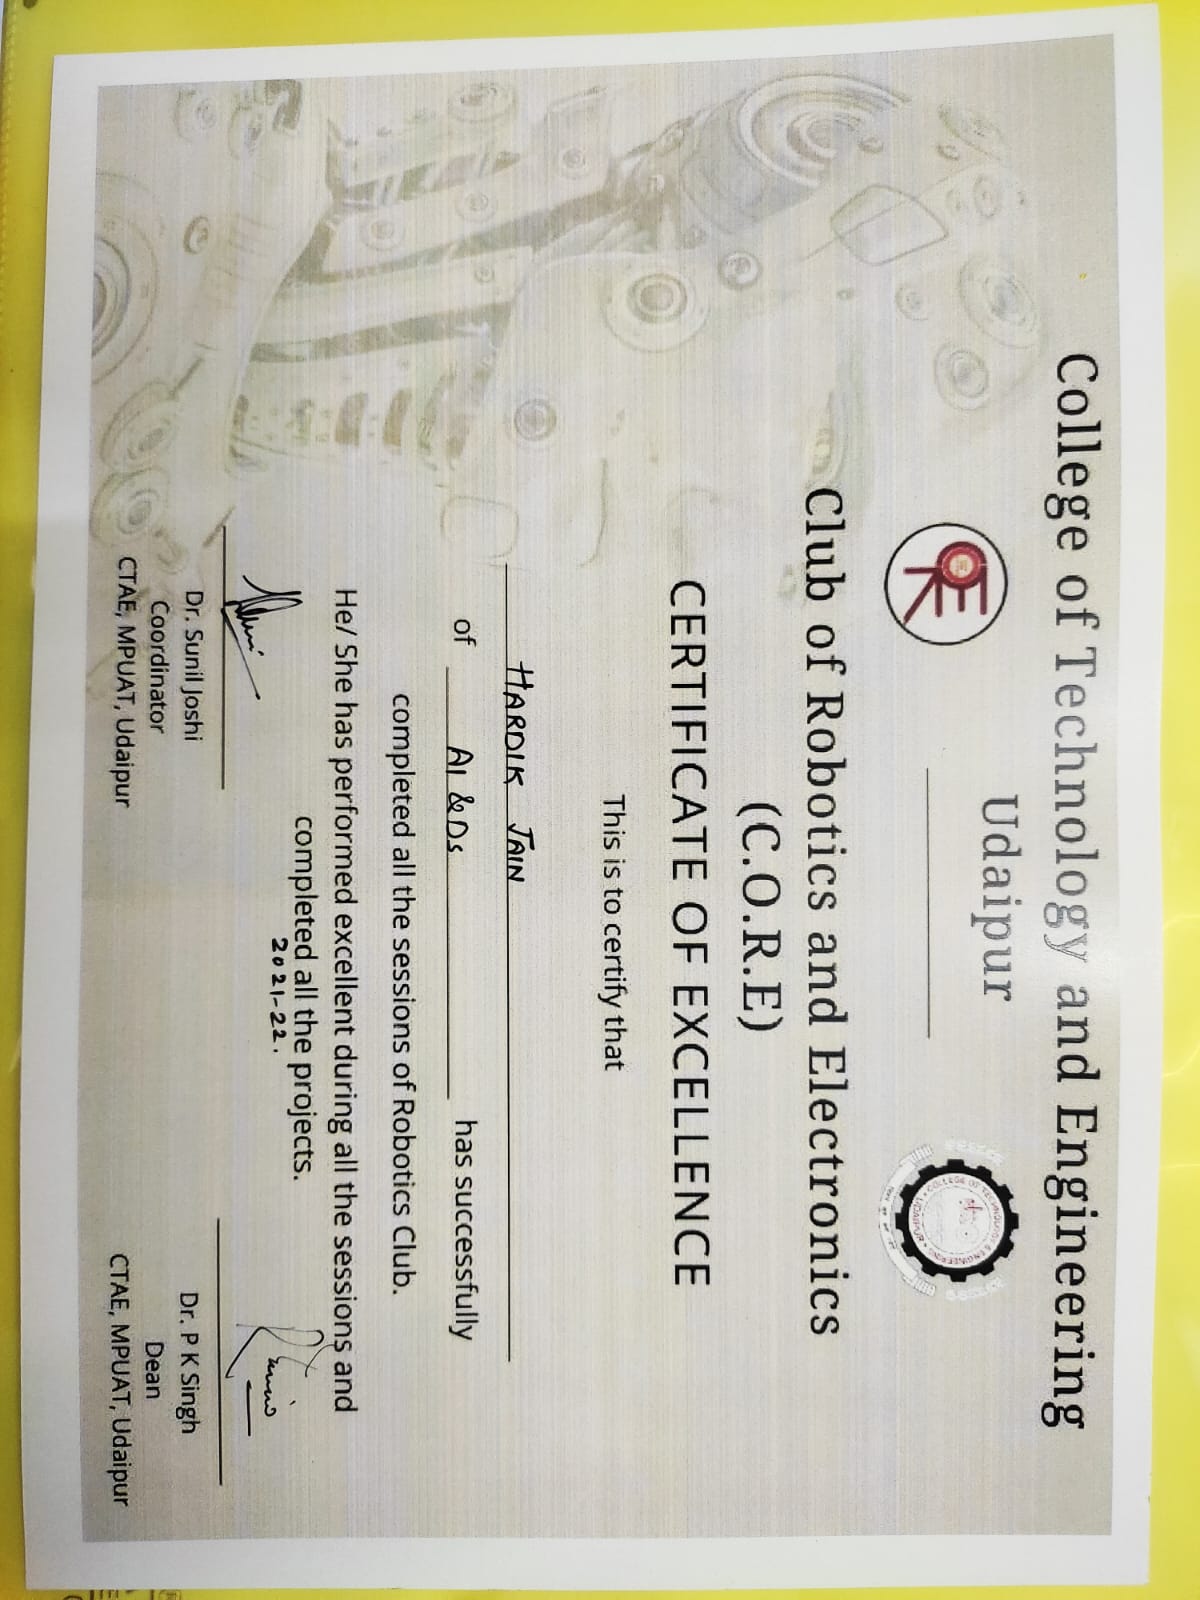 College of Technology and Engineering
Udaipur
COLLEGE OF TECHNOLOGY & ENGINEERING
UDAIPUR
Club of Robotics and Electronics
(C.O.R.E)
CERTIFICATE OF EXCELLENCE
This is to certify that
HARDIK JAIN
of AI & DS has successfully
completed all the sessions of Robotics Club.
He/ She has performed excellent during all the sessions and
completed all the projects.
2021-22.
Dr. Sunil Joshi
Coordinator
CTAE, MPUAT, Udaipur
Dr. P K Singh
Dean
CTAE, MPUAT, Udaipur